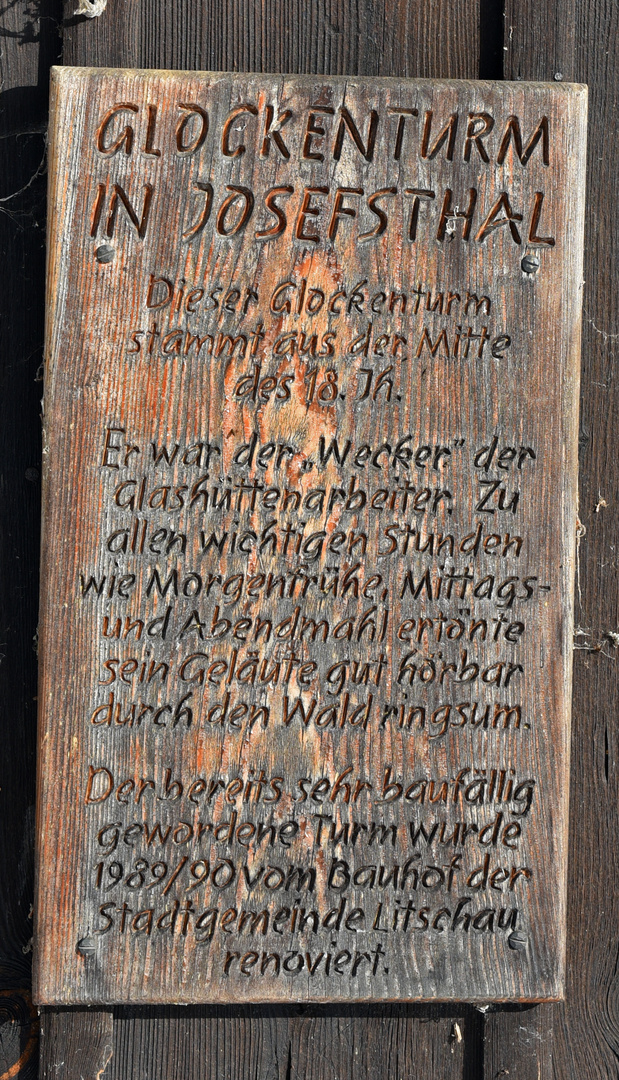 GLOCKENTURM
IN JOSEFSTHAL
Dieser Glockenturm
stammt aus der Mitte
des 18. Jh.
Er war der „Wecker" der
Glashüttenarbeiter. Zu
allen wichtigen Stunden
wie Morgenfrühe, Mittags-
und Abendmahl ertönte
sein Geläute gut hörbar
durch den Wald ringsum.
Der bereits sehr baufällig
gewordene Turm wurde
1989/90 vom Bauhof der
Stadtgemeinde Litschau
renoviert.